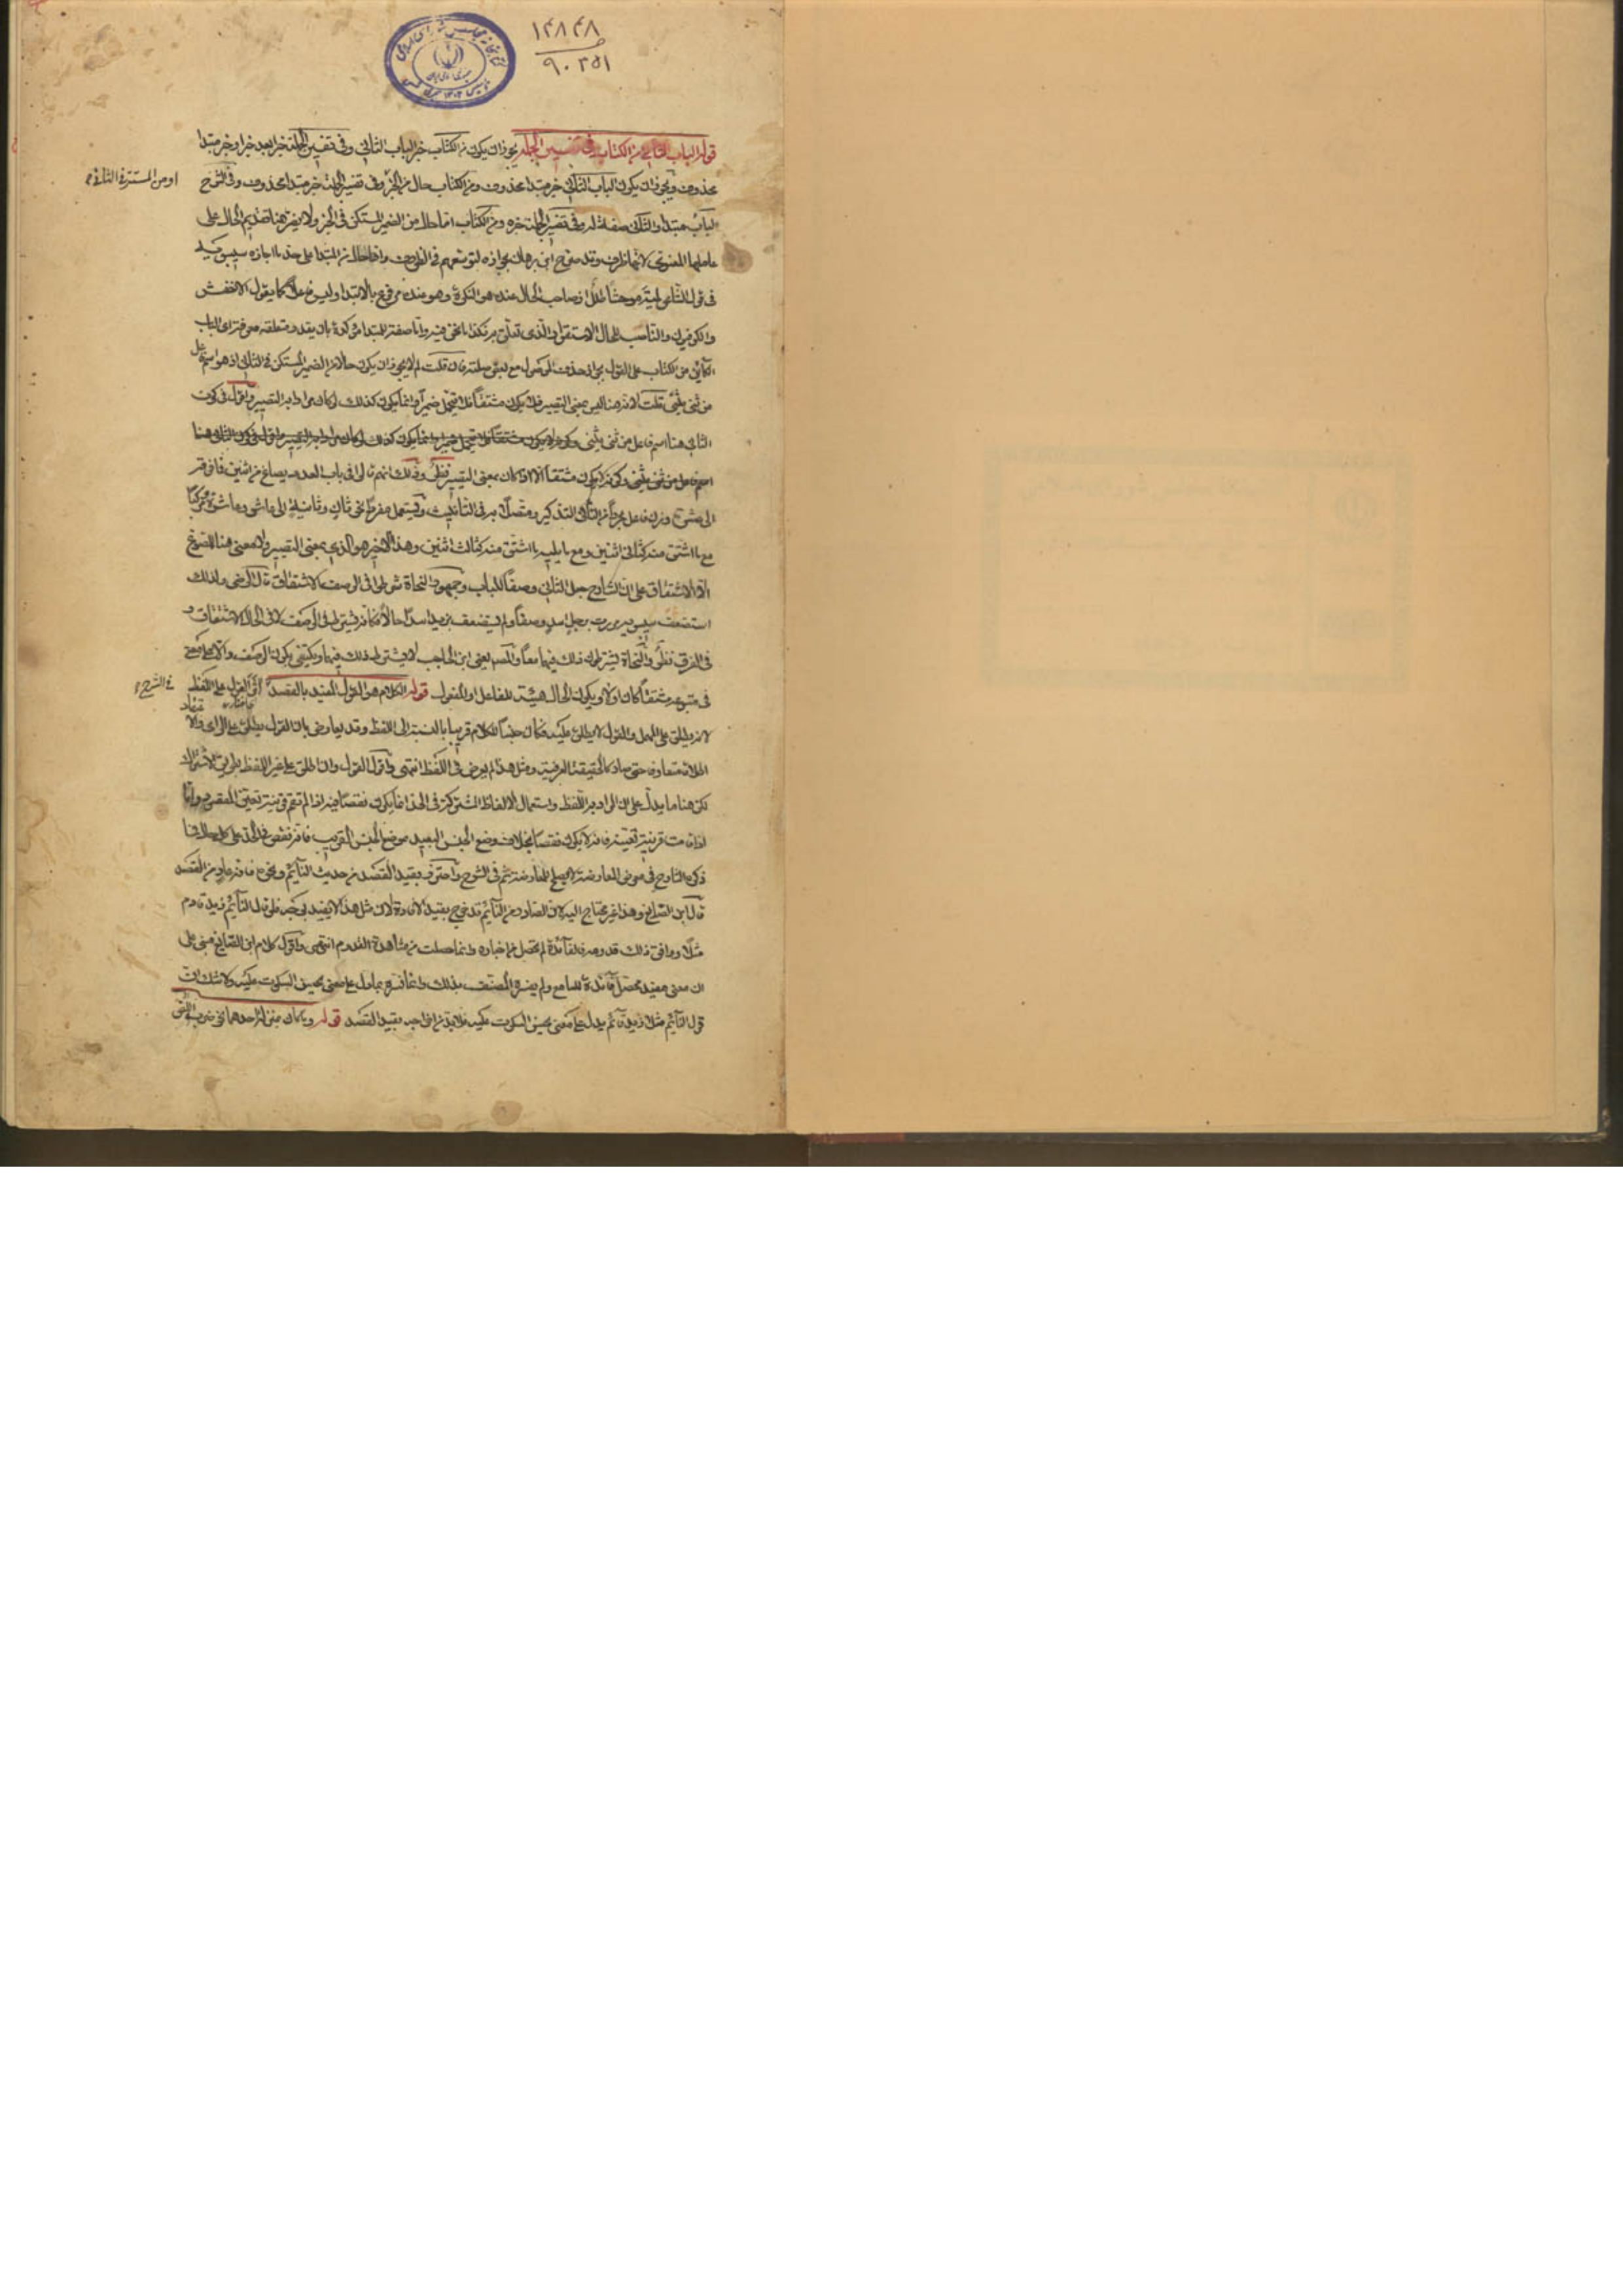 ١٢٨٢٨
٩٠٣٥١
قوله الباب الثاني من الكتاب في تفسير الجملة يجوز ان يكون من الكتاب خبر الباب الثاني وفي تفسير الجملة خبرا بعد خبر او خبر مبتدا
محذوف ويجوز ان يكون الباب الثاني خبر مبتدا محذوف ومن الكتاب حال من الخبر وفي تفسير الجملة خبر مبتدا محذوف وفي الشرح
او من المستتر في الثاني
الباب مبتدا والثاني صفة له وفي تفسير الجملة خبره ومن الكتاب اما حال من الضمير المستكن في الخبر ولا يضر هنا تقديم الحال على
عاملها المعنوي لانها ظرف وقد صرح ابن برهان بجوازه لتوسعهم في الظروف واما حال من المبتدا على حد ما اجازه سيبويه
في قول الشاعر لمية موحشا طلل اذ صاحب الحال عنده هو النكرة وهو عنده مرفوع بالابتداء وليس فاعلا كما يقول الاخفش
والكوفيون والناصب للحال الاستقرار الذي تعلق به واما صفة للمبتدا بان يقدر متعلقه معرفة اي الباب
الكائن من الكتاب على القول بجواز حذف الموصول مع بعض صلته فان قلت لم لا يجوز ان يكون حالا من الضمير المستكن في الثاني اذ هو اسم فاعل
من ثنى يثني قلت لانه هنا ليس بمعنى التصيير فلا يكون مشتقا فلا يتحمل ضميرا وانما يكون كذلك لو كان مرادا به التصيير واقول في كون
الثاني هنا اسم فاعل من ثنى يثني وكونه لا يكون مشتقا فلا يتحمل ضميرا وانما يكون كذلك لو كان مرادا به التصيير واقول في كون الثاني هنا
اسم فاعل من ثنى يثني وكونه لا يكون مشتقا الا اذا كان بمعنى التصيير نظر وذلك انهم قالوا في باب العدد يصاغ من اثنين فما فوق
الى عشرة وزن فاعل مجردا من التاء في التذكير ومتصلا به في التانيث ويستعمل مفردا نحو ثان وثانية الى عاشر وعاشرة ومركبا
مع ما اشتق منه كثاني اثنين ومع ما يليه ما اشتق منه كثالث اثنين وهذا الاخير هو الذي بمعنى التصيير ولا معنى هنا للصوغ
الا الاشتقاق على ان الشارح جعل الثاني وصفا للباب وجمهور النحاة شرطوا في الوصف الاشتقاق قال الرضي ولذلك
استضعف سيبويه مررت برجل اسد وصفا ولم يستضعف بزيد اسدا حالا فكانه يشترط في الوصف لا في الحال الاشتقاق و
في الفرق نظر والنحاة يشترطون ذلك فيهما معا والمصنف يعني ابن الحاجب لا يشترط ذلك فيهما ويكتفي بكون الوصف دالا على معنى
في متبوعه مشتقا كان او لا وبكون الحال هيئة للفاعل او المفعول قوله الكلام هو القول المفيد بالقصد اثر القول على اللفظ
في الشرح
لانه يطلق على المهمل والقول لا يطلق عليه فكان جنسا للكلام قريبا بالنسبة الى اللفظ وقد يعارض بان القول يطلق على الراي والاعتقاد
اطلاقا متعارفا حتى صار كالحقيقة العرفية ومثل هذا لم يعرض في اللفظ انتهى واقول القول وان اطلق على غير اللفظ بطريق الاشتراك
لكن هنا ما يدل على ان المراد به اللفظ واستعمال الالفاظ المشتركة في الحد انما يكون نقصا فيه اذا لم تقم قرينة تعين المقصود واما
اذا قامت قرينة تعينه فانه لا يكون نقصا بخلاف وضع الجنس البعيد موضع الجنس القريب فانه نقص في الحد على كل حال فما
ذكره الشارح في معرض المعارضة لا يصلح للمعارضة ثم في الشرح واحترز بقيد القصد من حديث النائم ونحوه فانه عار من القصد
قال ابن الصائغ وهذا غير محتاج اليه لان الصادر من النائم قد خرج بقيد الافادة لان مثل هذا لا يفيد بخبره فلو قال النائم زيد قادم
مثلا ووافق ذلك قدومه فالفائدة لم تحصل من اخباره وانما حصلت من مشاهدة القدوم انتهى واقول كلام ابن الصائغ مبني على
ان معنى مفيد محصل فائدة للسامع ولم يفسره المصنف بذلك وانما فسره بما دل على معنى يحسن السكوت عليه ولا شك ان
قول النائم مثلا زيد قائم يدل على معنى يحسن السكوت عليه فلا بد من اخراجه بقيد القصد قوله وما كان بمنزلة احدهما نحو ضرب اللص